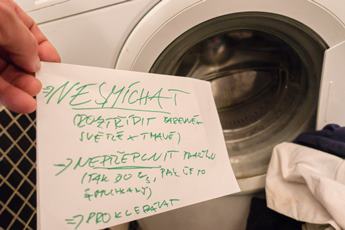 → NESMÍCHAT
(ROZTŘÍDIT BAREVNĚ
SVĚTLÉ X TMAVÉ)
→ NEPŘEPLNIT PRAČKU
(TAK DO 3/4, PAK JE TO
→ PROKLEPÁVAT